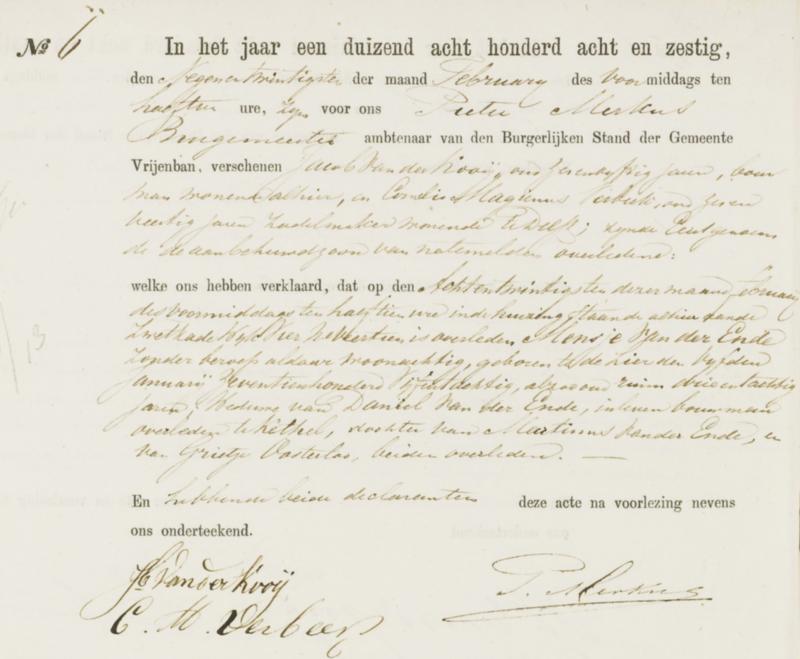 No 6 In het jaar een duizend acht honderd acht en zestig,
den Negenentwintigsten der maand February des voormiddags ten
half tien ure, zyn voor ons Pieter Merkus
Burgemeester ambtenaar van den Burgerlijken Stand der Gemeente
Vrijenban, verschenen Jacob van der Kooij, oud zevenenvyftig jaren, bouw
man wonende alhier, en Cornelis Magienus Verbeek, oud zeven
veertig jaren zadelmaker wonende te Delft; zynde
de aanbehuwdzoon van natemelden overledene:
welke ons hebben verklaard, dat op den Achtentwintigsten dezer maand February
des voormiddags ten half tien ure in de huizing staande alhier aan de
Zwetkade Wyk Vier No veertien is overleden Mensje van der Ende
zonder beroep aldaar woonachtig, geboren te de Lier den vyfden
January Zeventienhonderd vyfentachtig, alzoo oud ruim drieentachtig
jaren, Weduwe van Daniel van der Ende, in leven bouwman
overleden te Kethel, dochter van Martinus van der Ende, en
van Grietje Oosterlee, beiden overleden. —
En hebbende beide declaranten deze acte na voorlezing nevens
ons onderteekend.
Jb van der Kooij P. Merkus
C. M. Verbeek
13